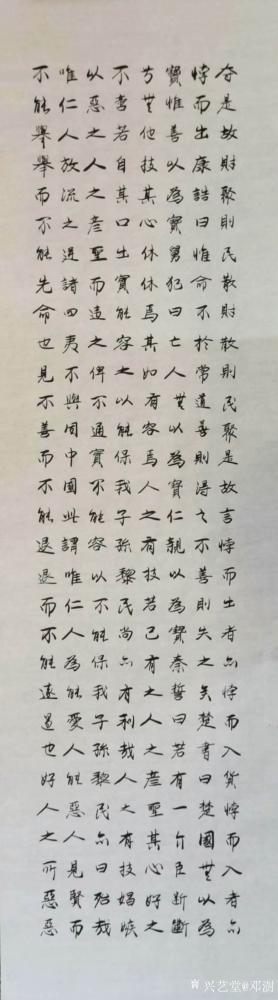 夺是故財聚則民散財散則民聚是故言悖而出者亦悖而入貨悖而入者亦
悖而出康誥曰惟命不於常道善則得之不善則失之矣楚書曰楚國無以為
寶惟善以為寶舅犯曰亡人無以為寶仁親以為寶秦誓曰若有一介臣斷斷
兮無他技其心休休焉其如有容焉人之有技若己有之人之彥聖其心好之
不啻若自其口出實能容之以能保我子孫黎民尚亦有利哉人之有技媢嫉
以惡之人之彥聖而違之俾不通實不能容以不能保我子孫黎民亦曰殆哉
唯仁人放流之迸諸四夷不與同中國此謂唯仁人為能愛人能惡人見賢而
不能舉舉而不能先命也見不善而不能退退而不能遠過也好人之所惡
兴艺堂@邓澍